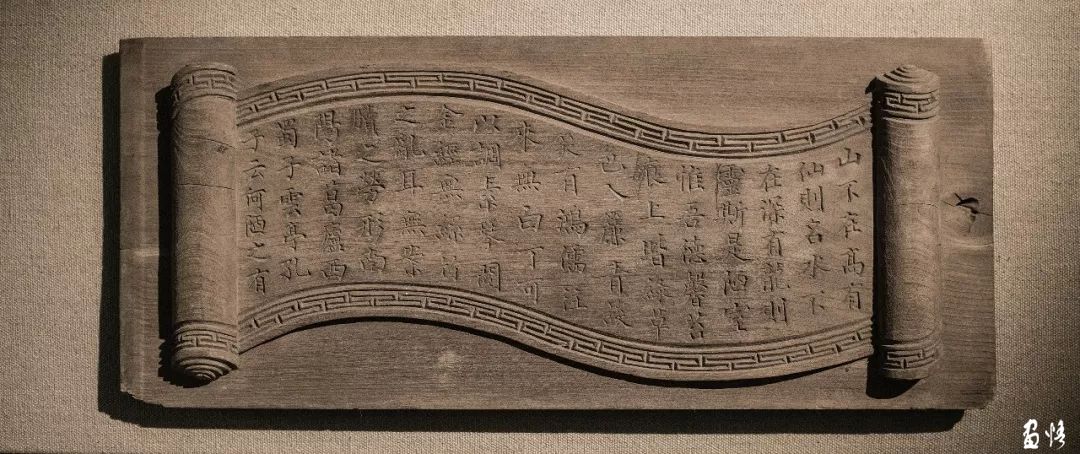 山不在高有
仙則名水不
在深有龍則
靈斯是陋室
惟吾德馨苔
痕上階綠草
色入簾青談
笑有鴻儒往
來無白丁可
以調素琴閱
金經無絲竹
之亂耳無案
牘之勞形南
陽諸葛廬西
蜀子雲亭孔
子云何陋之有
悟